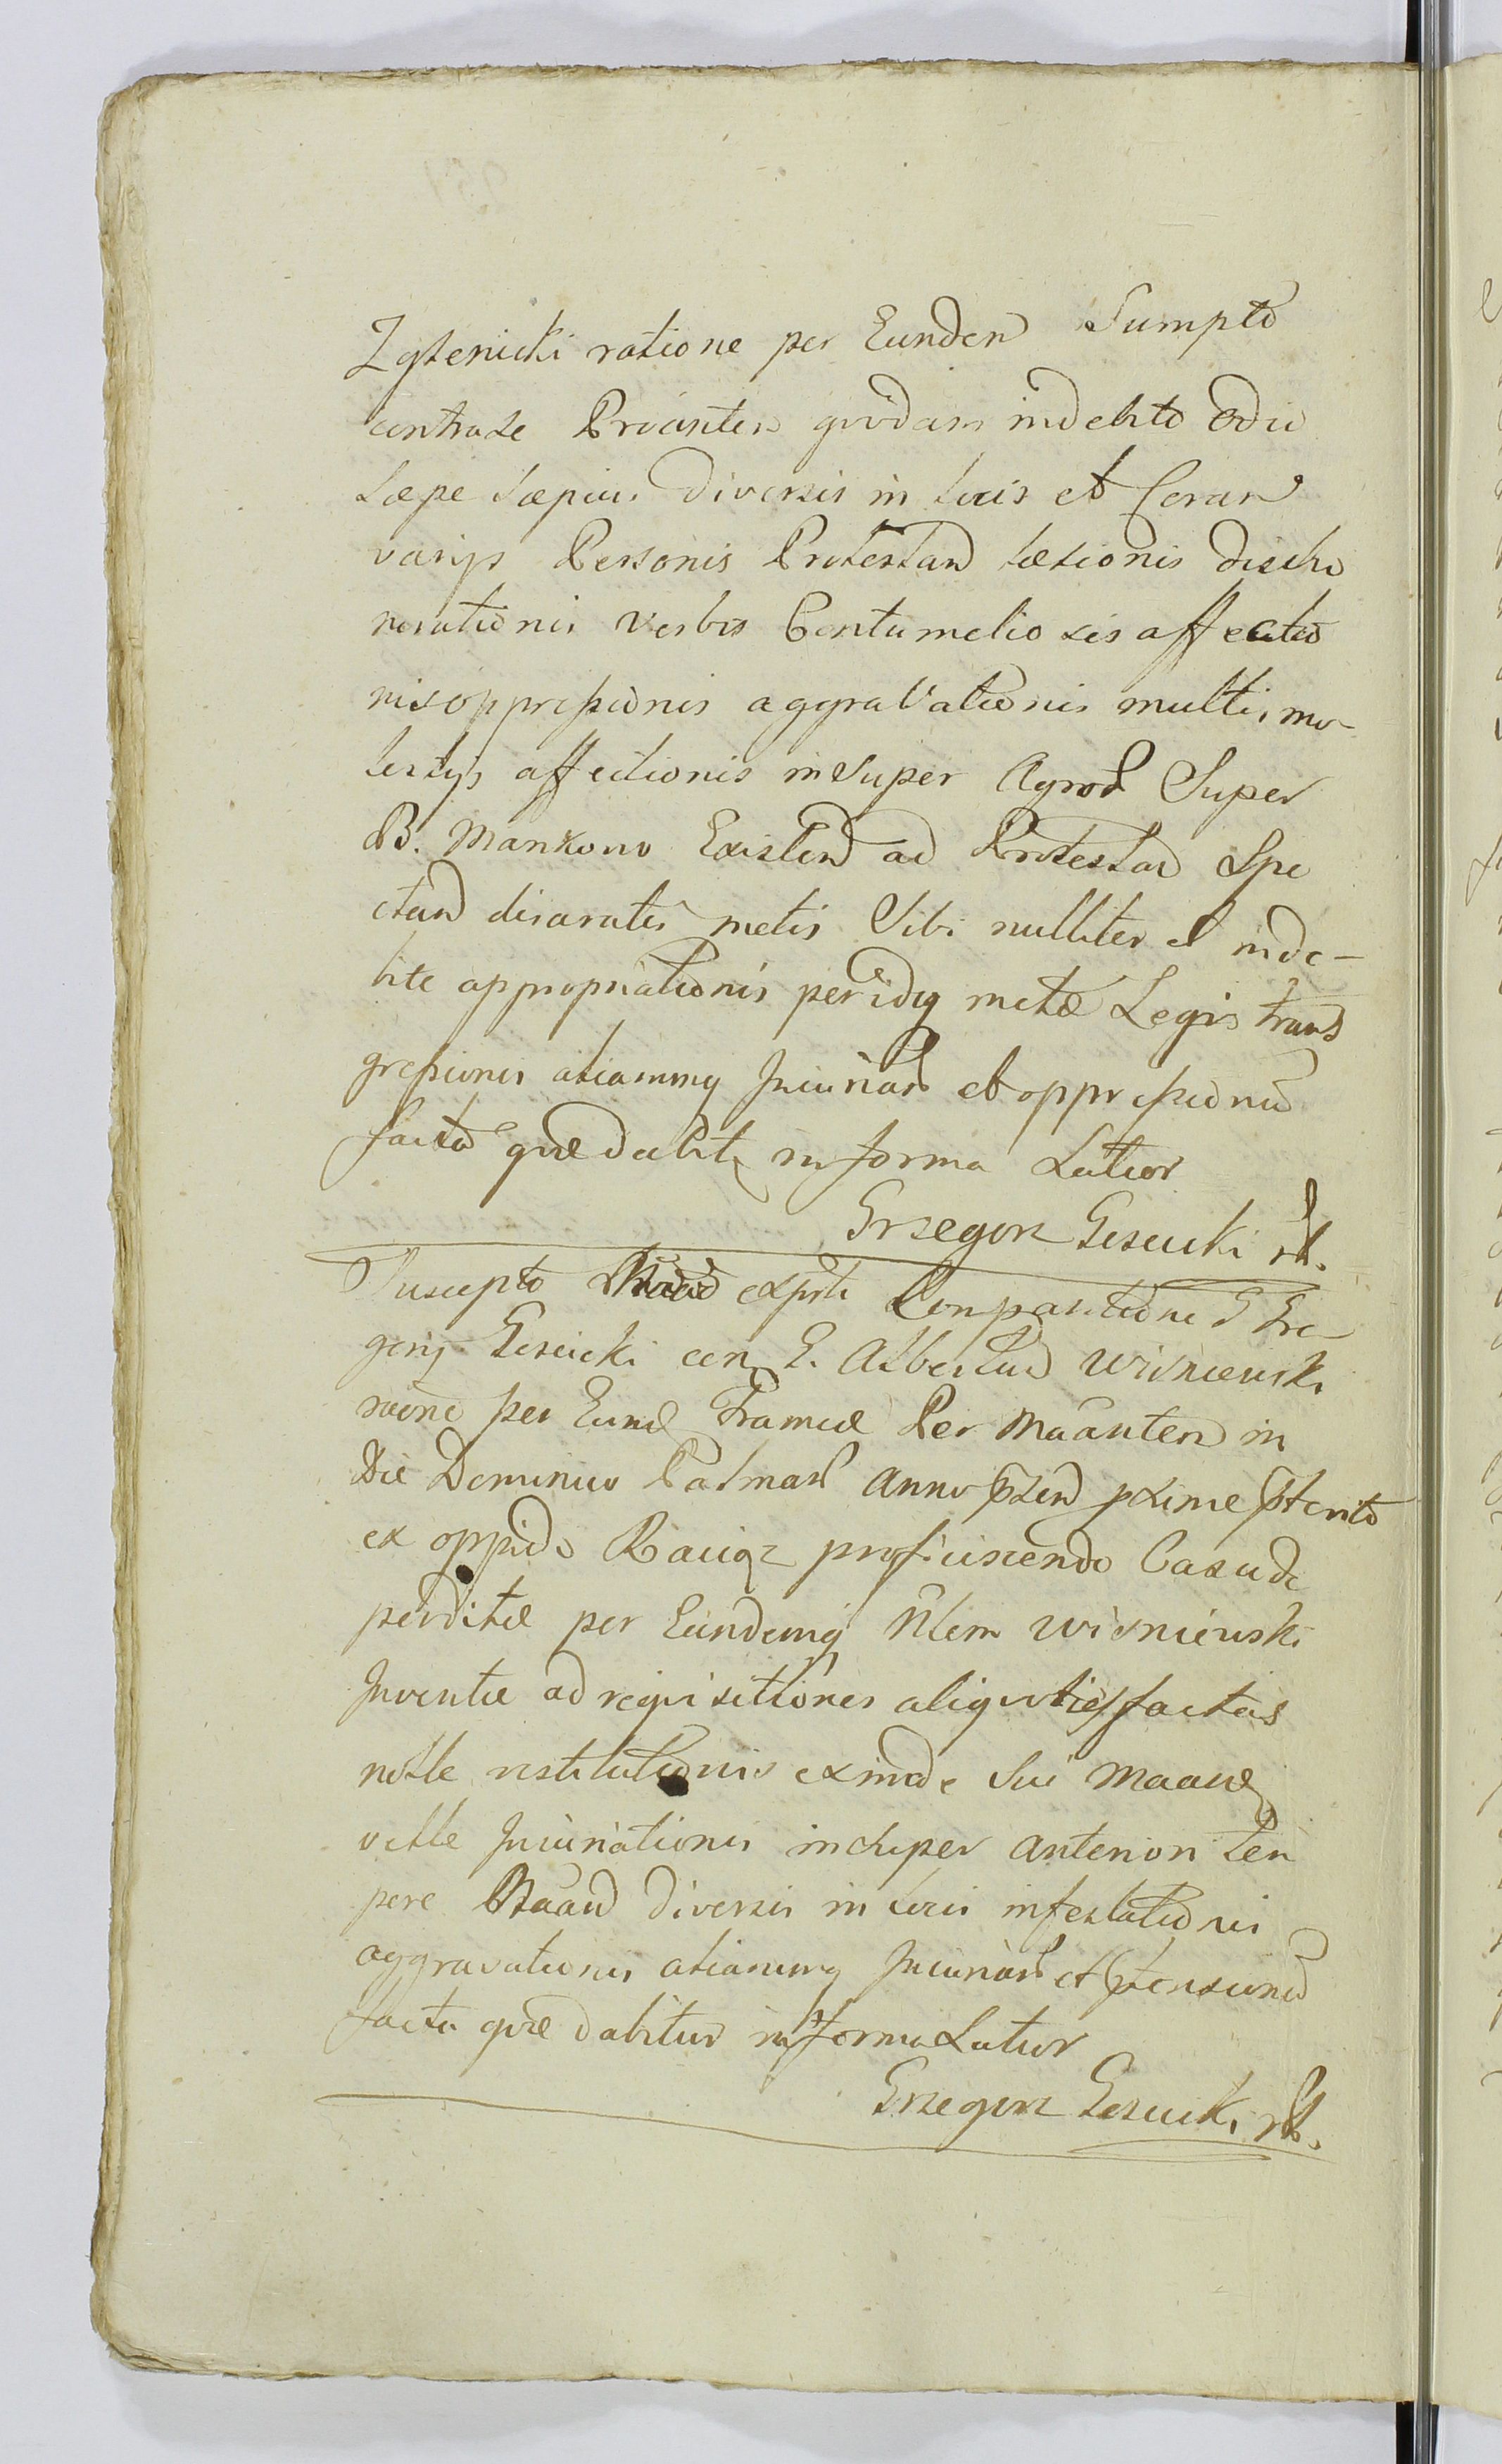 Zglenicki ratione per Eunden Sumpto
contra se Prõanten quodam indebito Odio
Sæpe Sæpius diversis in locis et Coran
varijs Personis Protestan læsionis dischо
norationis verbis Contumeliosis affectio
nis oppressionis aggravationis multis mo-
lestijs affectionis insuper Agror Super
B. Mankowo Existen ad Protestan Spe
ctan disaratis metis Sibi nulliter et inde-
bite appropriationis per idq metæ Legis trans
gressionis aliarumq Iniuriar et oppressionũ
facta quæ dabit in forma Latior
Grzegorz Gesicki
Suscepto exposita Comparitione G Gre
gorij Gesicki con G. Albertum Wisniewski
raõne per Eund Frameæ Per Maãnten in
Die Dominico Palmar Anno pxime pterito
ex oppido Raciąz proficiscendo Casu de
perditæ per Eundemq Nlem Wisniewski
Inventæ ad requisitiones aliquoties factas
nolle restitutionis exinde Sui
velle Iniuriationis insuper anteriori tem
pere diversis in locis infestationis
aggravationis aliarumq Iniuriar et ptensionũ
facta quæ dabitur in forma Latior
Grzegorz Gesicki